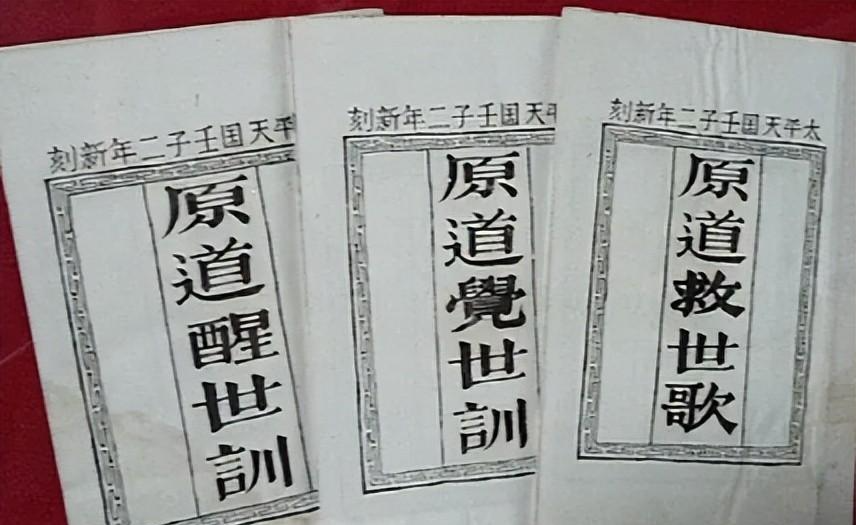 太平天国壬子二年新刻
原道救世歌
平天国壬子二年新刻
原道覺世訓
平天国壬子二年新刻
原道醒世訓